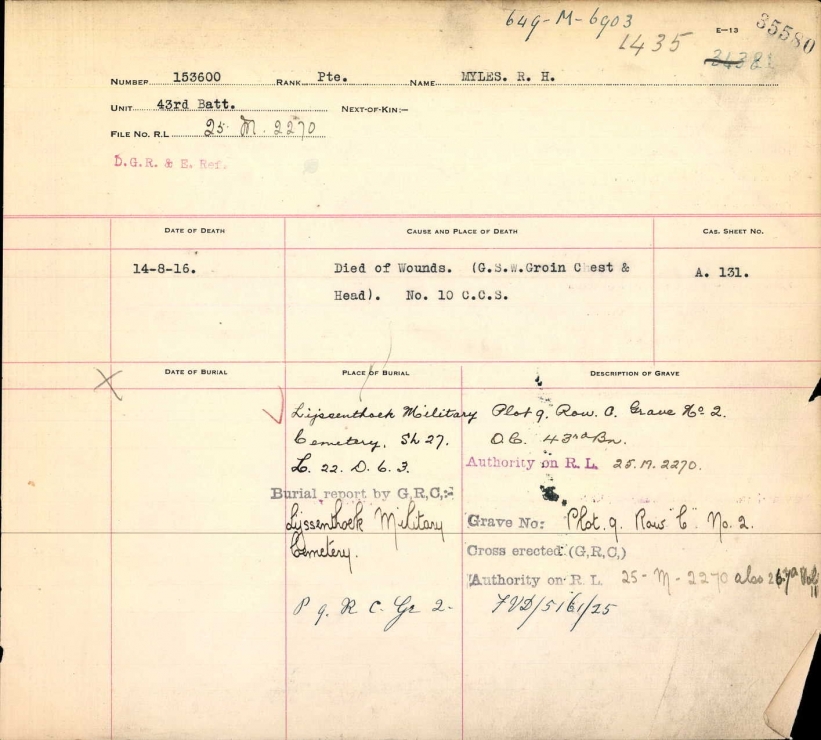 649-M-6903
1435
E-13
35580
NUMBER 153600 RANK Pte. NAME MYLES. R. H.
UNIT 43rd Batt. NEXT-OF-KIN:-
FILE NO. R.L 25. M. 2270
D.G.R. & E. Ref.
DATE OF DEATH CAUSE AND PLACE OF DEATH CAS. SHEET NO.
14-8-16. Died of Wounds. (G.S.W.Groin Chest & A. 131.
Head). No. 10 C.C.S.
DATE OF BURIAL PLACE OF BURIAL DESCRIPTION OF GRAVE
Lijssenthoek Military Plot 9. Row. C. Grave No 2.
Cemetery, Sh 27. O.C. 43rd Bn.
L. 22. D. 6. 3. Authority on R. L. 25.M.2270.
Burial report by G,R,C,:-
Lijssenthoek Military Grave No: Plot. 9. Row "C" No. 2.
Cemetery. Cross erected (G,R,C,)
Authority on R. L. 25-M-2270 also
P 9. R C. Gr 2.